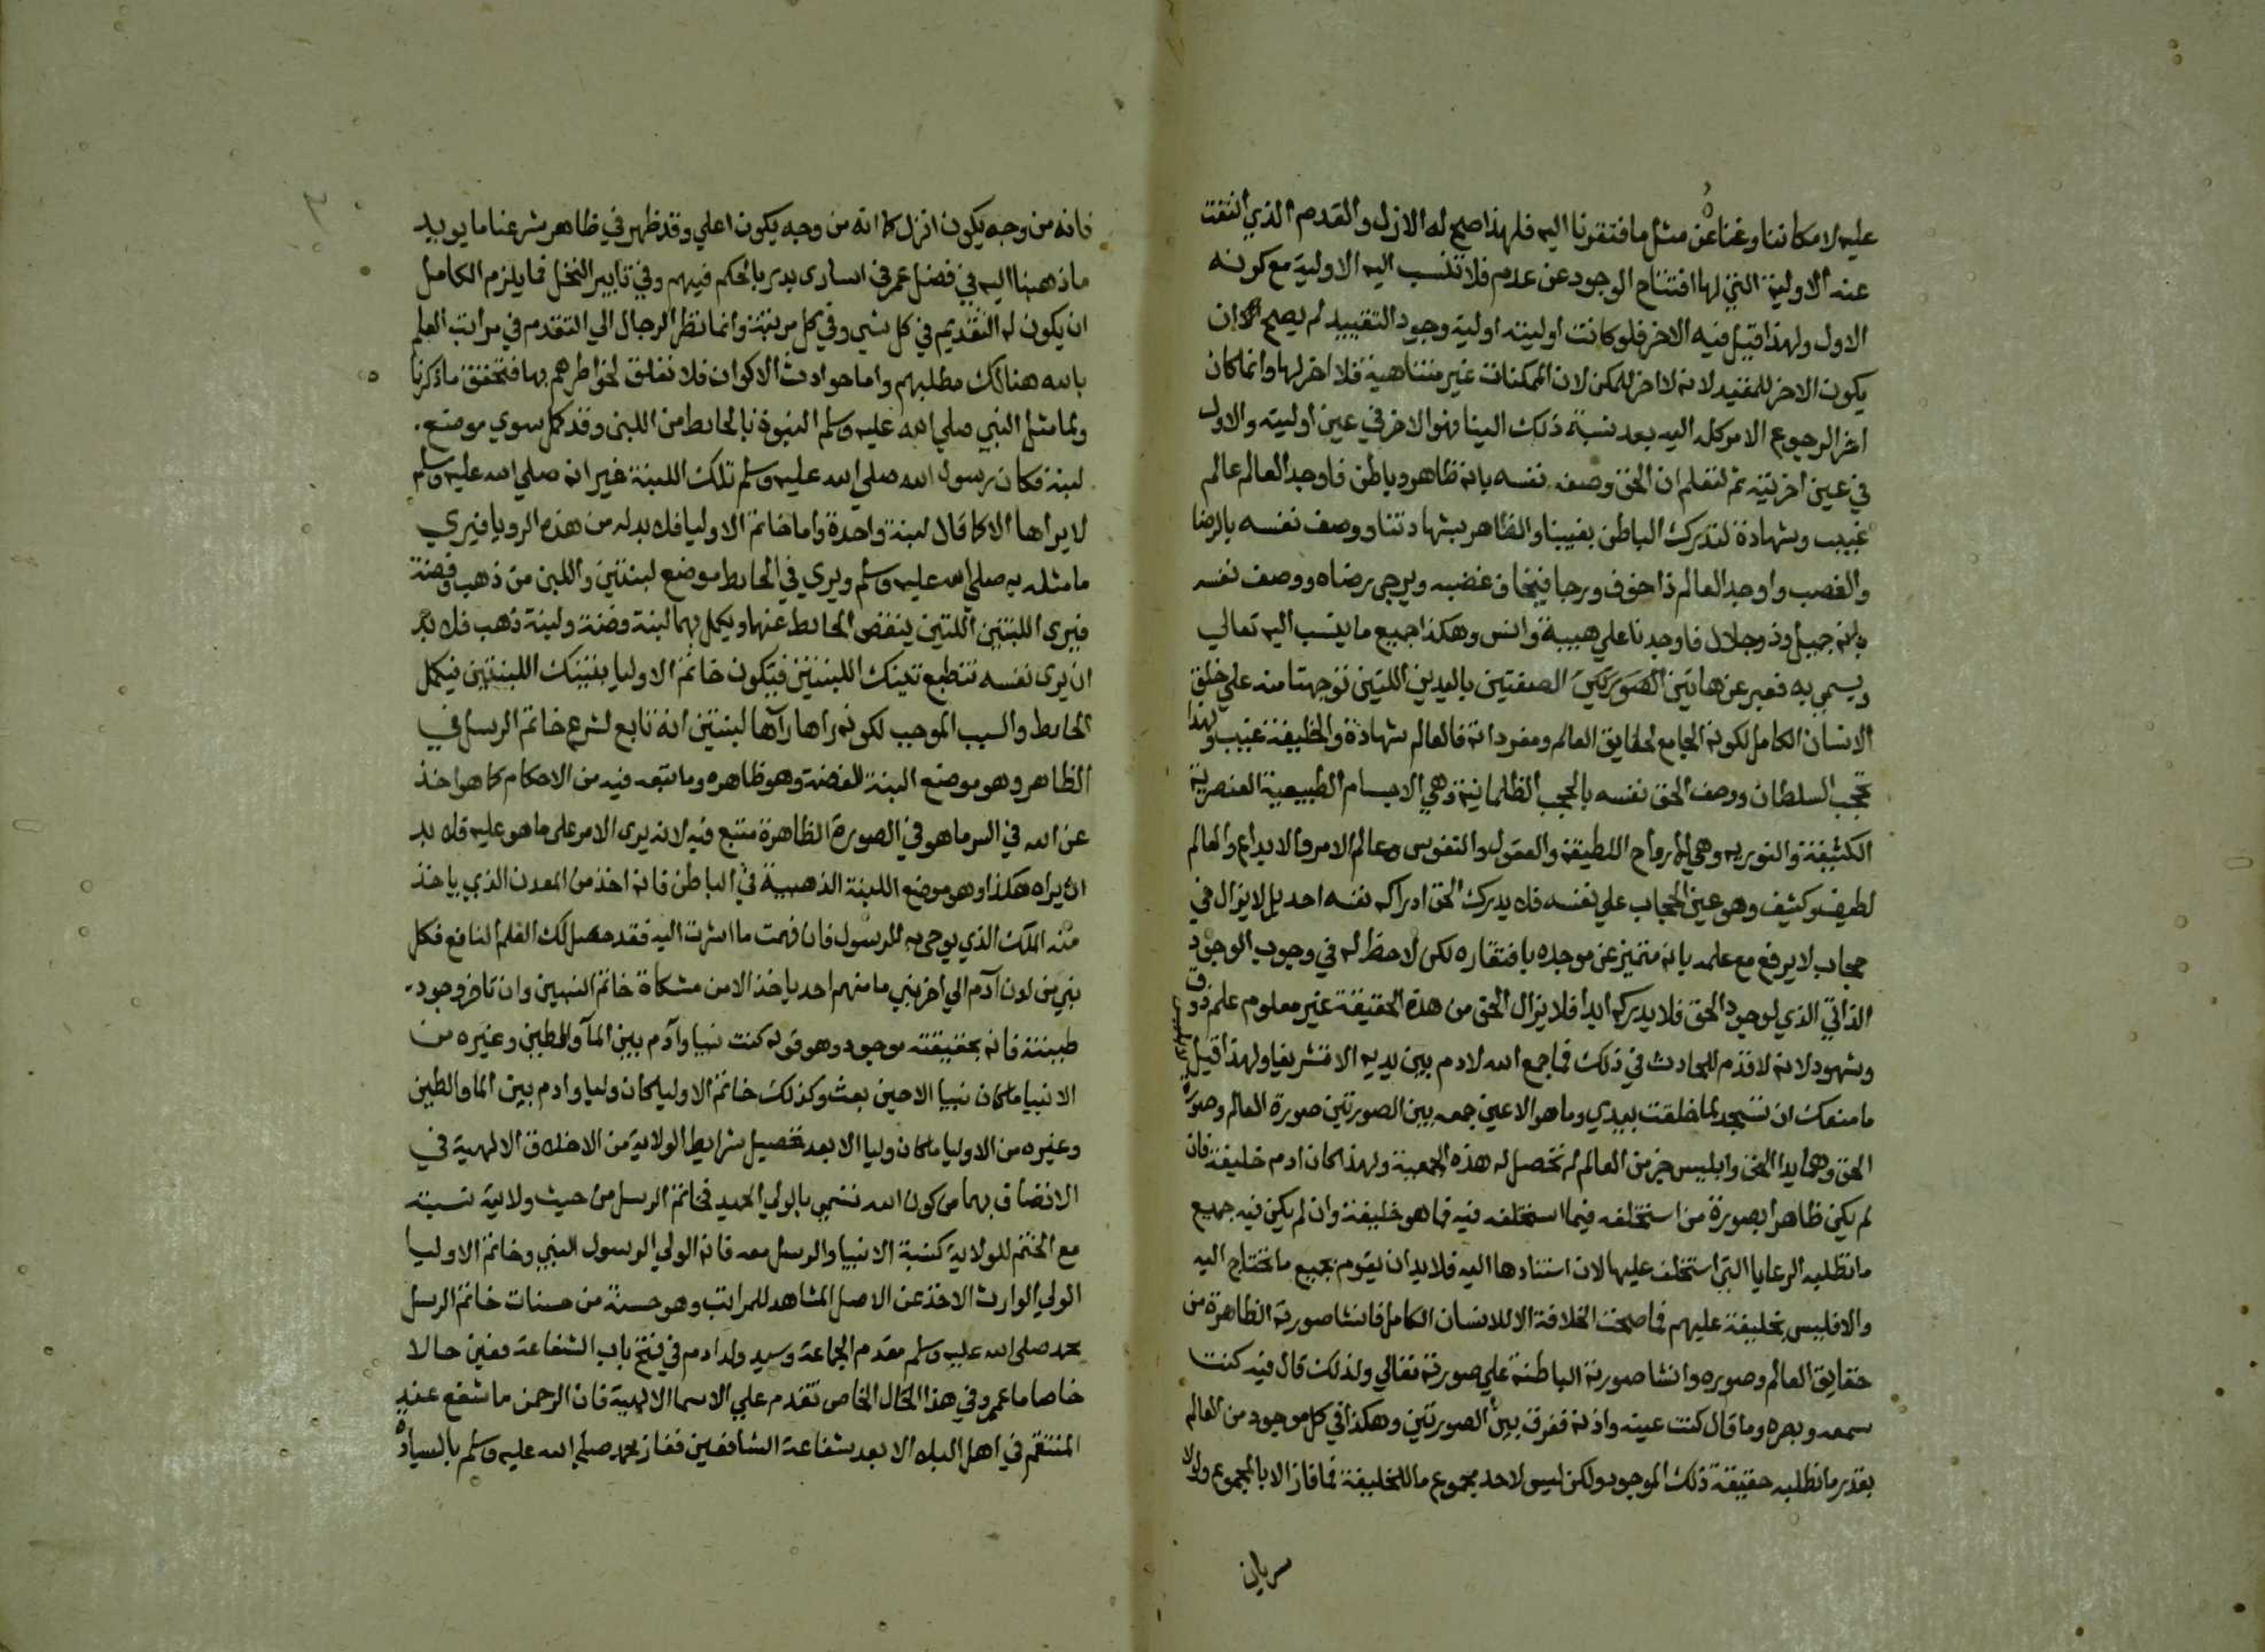 عليه لامكاننا وغناه عن مثل ما افتقرنا اليه فلهذا صح له الازل والقدم الذي انتفت
عنه الاولية التي لها افتتاح الوجود عن عدم فلا تنسب اليه الاولية مع كونه
الاول ولهذا قيل فيه الاخر فلو كانت اوليته اولية وجود التقييد لم يصح ان
يكون الاخر للمقيد لانه لا اخر للممكن لان الممكنات غير متناهية فلا اخر لها وانما كان
اخرا لرجوع الامر كله اليه بعد نسبة ذلك الينا فهو الاخر في عين اوليته والاول
في عين اخريته ثم لتعلم ان الحق وصف نفسه بانه ظاهر وباطن فاوجد العالم عالم
غيب وشهادة لتدرك الباطن بغيبنا والظاهر بشهادتنا ووصف نفسه بالرضا
والغضب واوجد العالم ذا خوف ورجا فيخاف غضبه ويرجي رضاه ووصف نفسه
بانه جميل وذو جلال فاوجدنا علي هيبة وانس وهكذا جميع ما ينسب اليه تعالي
ويسمي به فعبر عن هاتين الصورتين الصفتين باليدين اللتين توجهتا منه علي خلق
الانسان الكامل لكونه الجامع لحقايق العالم ومفرداته فالعالم شهادة والخليفة غيب ولهذا
تحجب السلطان ووصف الحق نفسه بالحجب الظلمانية وهي الاجسام الطبيعية العنصرية
الكثيفة والنوريه وهي الارواح اللطيفة والعقول والنفوس وعالم الامر والابداع والعالم
لطيف وكثيف وهو عين الحجاب علي نفسه فلا يدرك الحق ادراكه نفسه احد بل لا يزال في
حجاب لا يرفع مع علمه بانه متميز عن موجده بافتقاره لكن لا حظ له في وجوب الوجود
الذاتي الذي لوجود الحق فلا يدركه ابدا فلا يزال الحق من هذه الحقيقة غير معلوم علم ذوق
وشهود لانه لا قدم للحادث في ذلك فما جمع الله لادم بين يديه الا تشريفا ولهذا قيل
ما منعك ان تسجد لما خلقت بيدي وما هو الا عين جمعه بين الصورتين صورة العالم وصورة
الحق وهما يدا الحق وابليس جز من العالم لم تحصل له هذه الجمعية ولهذا كان ادم خليفة فان
لم يكن ظاهرا بصورة من استخلفه فيما استخلفه فيه فما هو خليفة وان لم يكن فيه جميع
ما تطلبه الرعايا التي استخلف عليها لان استنادها اليه فلا بد ان يقوم بجميع ما تحتاج اليه
والا فليس بخليفة عليهم فما صحت الخلافة الا للانسان الكامل فانشا صورته الظاهرة من
حقايق العالم وصوره وانشا صورته الباطنة علي صورته تعالي ولذلك قال فيه كنت
سمعه وبصره وما قال كنت عينه واذنه ففرق بين الصورتين وهكذا في كل موجود من العالم
بقدر ما تطلبه حقيقة ذلك الموجود ولكن ليس لاحد مجموع ما للخليفة فما فاز الا بالمجموع ولولا
سريان
فانه من وجه يكون انزل كما انه من وجه يكون اعلي وقد ظهر في ظاهر شرعنا ما يويد
ما ذهبنا اليه في فضل عمر في اسارى بدر بالحكم فيهم وفي تابير النخل فما يلزم الكامل
ان يكون له التقديم في كل شي وفي كل مرتبة وانما نظر الرجال الي التقدم في مراتب العلم
بالله هنالك مطلبهم واما حوادث الاكوان فلا تعلق لخواطرهم بها فتحقق ما ذكرنا
ولما مثل النبي صلي الله عليه وسلم النبوة بالحايط من اللبن وقد كمل سوي موضع
لبنة فكان رسول الله صلي الله عليه وسلم تلك اللبنة غير انه صلي الله عليه وسلم
لا يراها الا كما قال لبنة واحدة واما خاتم الاوليا فلا بد له من هذه الرويا فيري
ما مثله به صلي الله عليه وسلم ويري في الحايط موضع لبنتين واللبن من ذهب وفضة
فيري اللبنتين اللتين ينقص الحايط عنهما ويكمل بهما لبنة فضة ولبنة ذهب فلا بد
ان يرى نفسه تنطبع تينك اللبنتين فيكون خاتم الاوليا بتينك اللبنتين فيكمل
الحايط والسبب الموجب لكونه راها رآها لبنتين انه تابع لشرع خاتم الرسل في
الظاهر وهو موضع البنة للفضة وهو ظاهره وما يتبعه فيه من الاحكام كما هو اخذ
عن الله في السر ما هو في الصورة الظاهرة متبع فيه لانه يرى الامر على ما هو عليه فلا بد
ان يراه هكذا وهو موضع اللبنة الذهبية في الباطن فانه اخذ من المعدن الذي ياخذ
منه الملك الذي يوحي به للرسول فان فهمت ما اشرت اليه فقد حصل لك العلم النافع فكل
نبي من لدن آدم الي اخر نبي ما منهم احد ياخذ الا من مشكاة خاتم النبيين وان تاخر وجود
طينته فانه بحقيقته موجود وهو قوله كنت نبيا وآدم بين المآ والطين وغيره من
الانبيا ما كان نبيا الا حين بعث وكذلك خاتم الاوليا كان وليا وادم بين الما والطين
وغيره من الاوليا ما كان وليا الا بعد تحصيل شرايط الولاية من الاخلاق الالهية في
الاتصاف بها من كون الله تسمي بالولي الحميد فخاتم الرسل من حيث ولايته نسبته
مع الختم للولاية كنسبة الانبيا والرسل معه فانه الولي الرسول النبي وخاتم الاوليا
الولي الوارث الاخذ عن الاصل المشاهد للمراتب وهو حسنة من حسنات خاتم الرسل
محمد صلى الله عليه وسلم مقدم الجماعة وسيد ولد ادم في فتح باب الشفاعة فعين حالا
خاصا ما عمم وفي هذا الحال الخاص تقدم علي الاسما الالهية فان الرحمن ما شفع عند
المنتقم في اهل البلا الا بعد شفاعة الشافعين ففاز محمد صلي الله عليه وسلم بالسيادة